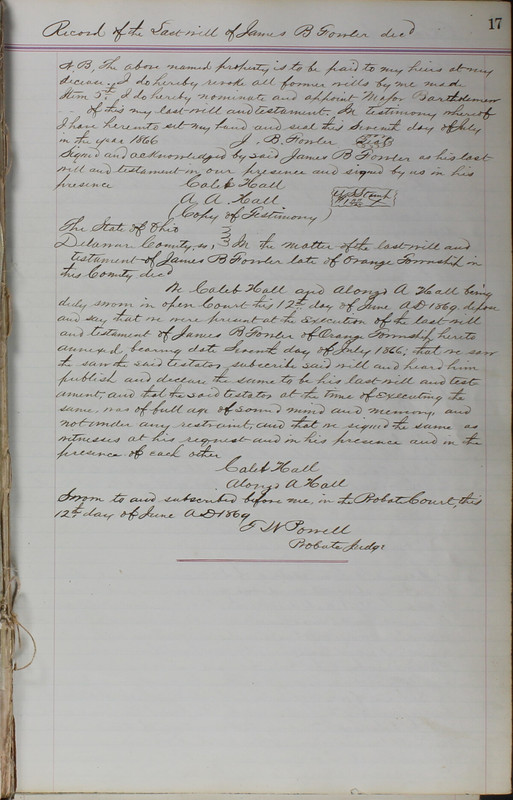 17
Record of the Last will of James B Fowler decd
N.B. The above named property is to be paid to my heirs at my
decease. I do hereby revoke all former wills by me made
Item 5th I do hereby nominate and appoint Major Bartholomew
of this my last will and testament. In testimony whereof
I have hereunto set my hand and seal this Seventh day of July
in the year 1866 J. B. Fowler Seal
Signed and acknowledged by said James B Fowler as his last
will and testament in our presence and signed by us in his
presence Caleb Hall
A A. Hall U.S. Stamp
(Copy of Testimony)
The State of Ohio
Delaware County, ss, In the matter of the last will and
testament of James B Fowler late of Orange Township in
this County decd
We Caleb Hall and Alonzo A Hall being
duly sworn in open Court this 12th day of June A.D 1869. depose
and say that we were present at the Execution of the last will
and testament of James B Fowler of Orange Township hereto
annexed, bearing date Seventh day of July 1866; that we saw
the saw the said testator subscribe said will and heard him
publish and declare the same to be his last will and test
ament, and that the said testator at the time of executing the
same, was of full age of sound mind and memory, and
not under any restraint, and that we signed the same as
witnesses at his request and in his presence and in the
presence of each other
Caleb Hall
Alonzo A Hall
Sworn to and subscribed before me, in the Probate Court, this
12th day of June A D 1869
T W Powell
Probate Judge